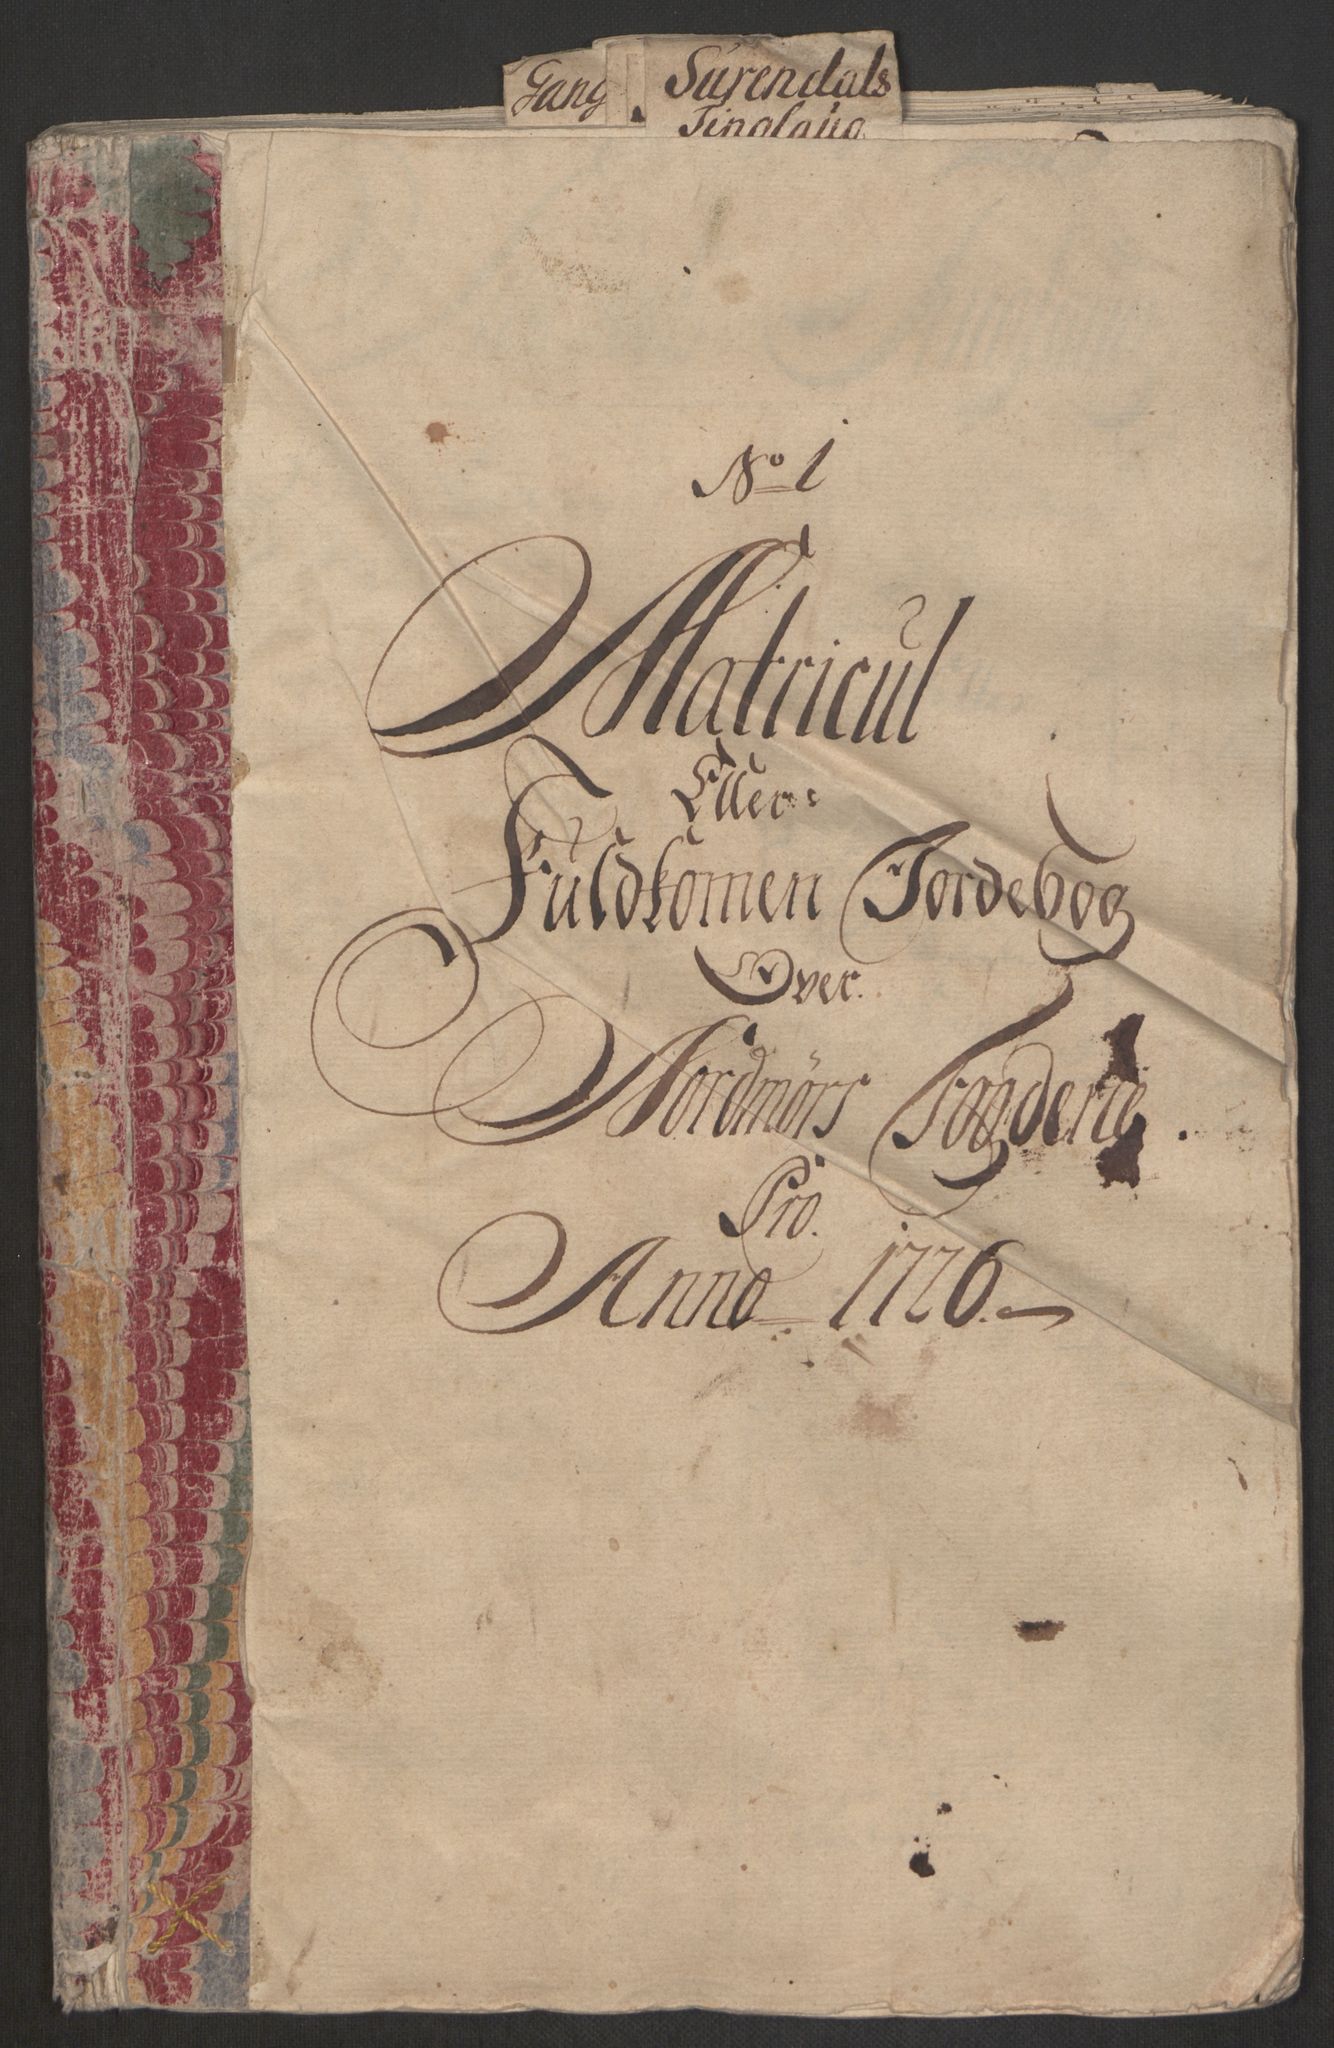 Gang
Surendals
Tinglaug
No 1
Matricul
Eller
Fuldkomen Jordebog
Over.
Nordmørs Fogderie.
Pro.
Anno 1726.